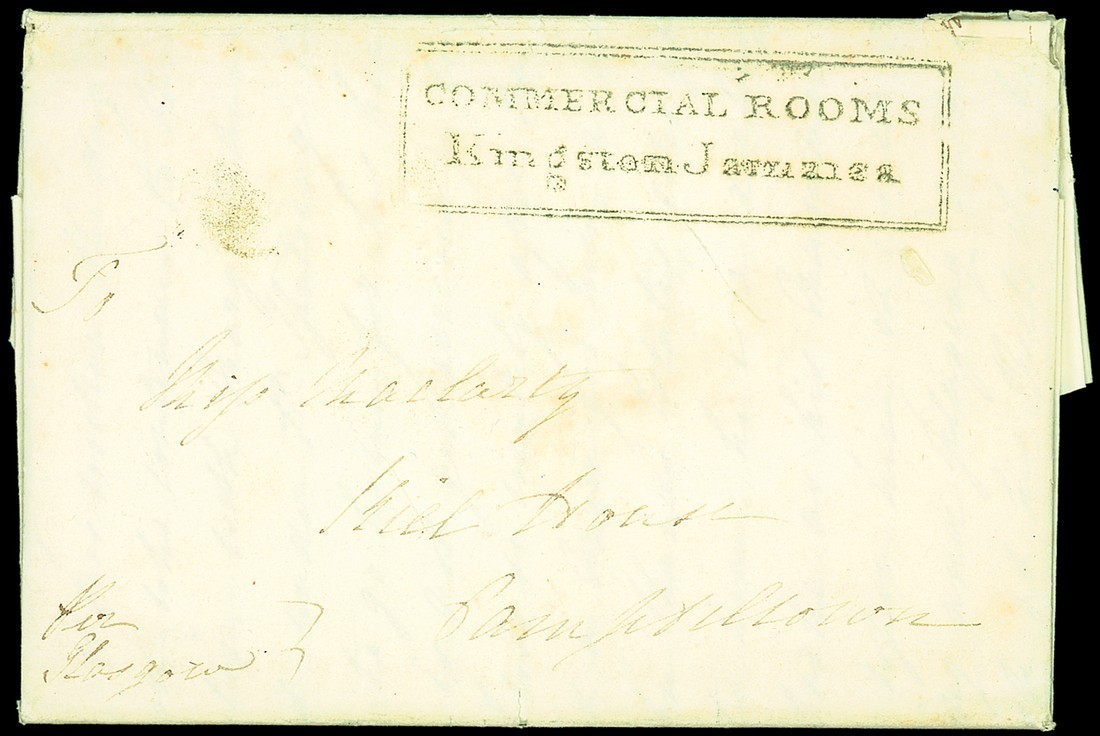 COMMERCIAL ROOMS
Kingston Jamaica
To
Miss Maclarty
Kiel House
Campbelltown
Per
Glasgow